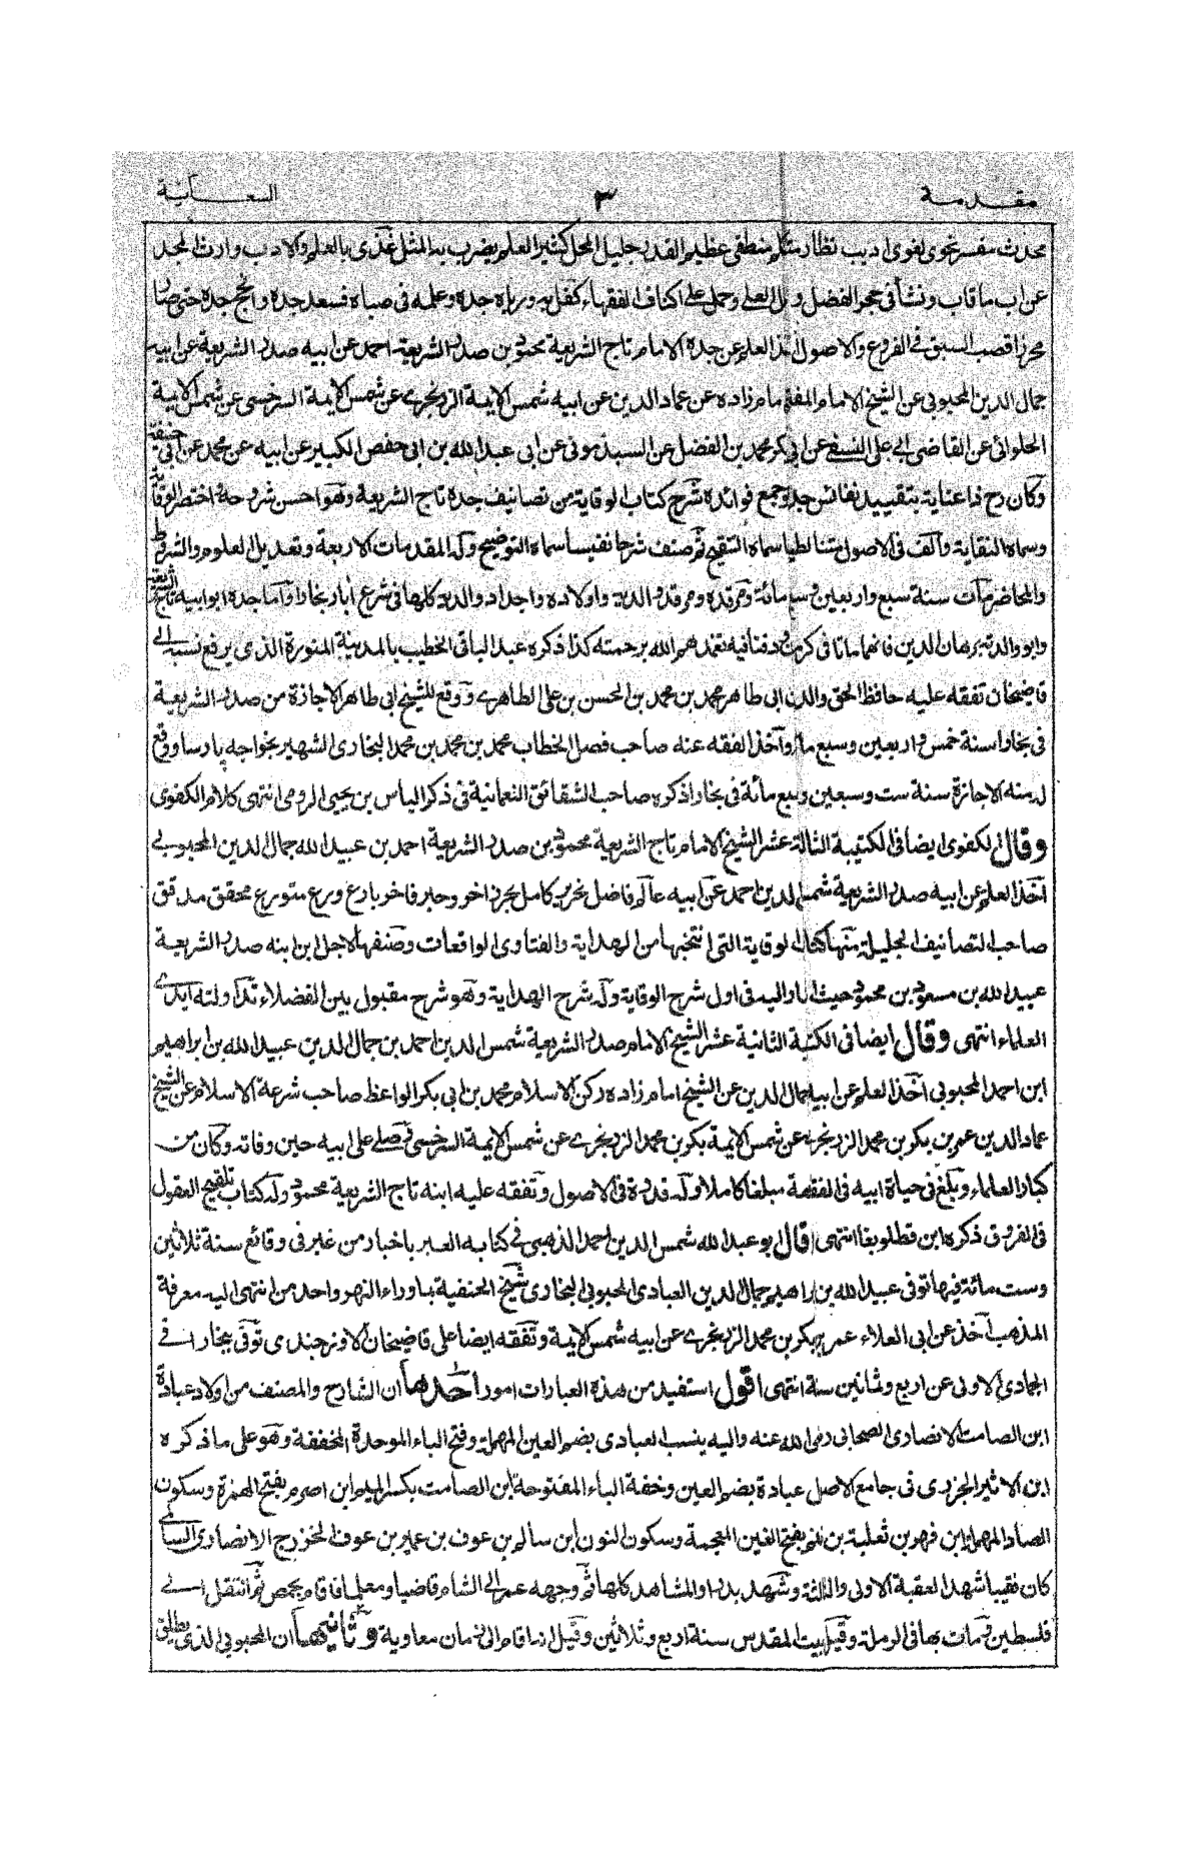 مقدمة ٣ السعاية
محدث مفسر نحوی لغوی ادیب نظار متكلم منطقی عظیم القدر جلیل المحل كثیر العلم یضرب به المثل غذی بالعلم والادب وارث المجد
عن اب فاب ونشأ فی حجر الفضل ونال العلی وحمل علی اكتاف الفقهاء كفله ورباه جده وعلمه فی صباه فسعد جده وانجح جده حتی صار
محرزا قصب السبق فی الفروع والاصول اخذ العلم عن جده الامام تاج الشریعة محمود بن صدر الشریعة احمد عن ابیه صدر الشریعة عن ابیه
جمال الدین المحبوبی عن الشیخ الامام المفتی امام زاده عن عماد الدین عن ابیه شمس الایمة الزرنجری عن شمس الایمة السرخسی عن شمس الایمة
الحلوائی عن القاضی ابی علی النسفی عن ابی بكر محمد بن الفضل عن السبذمونی عن ابی عبد الله بن ابی حفص الكبیر عن ابیه عن محمد عن ابی حنیفة
وكان رح ذا عنایة بتقیید نفائس جده وجمع فوائده شرح كتاب الوقایة من تصانیف جده تاج الشریعة وهو احسن شروحه ثم اختصر الوقایة
وسماه النقایة والف فی الاصول متنا لطیفا سماه التنقیح ثم صنف شرحا نفیسا سماه التوضیح وله المقدمات الاربعة وتعدیل العلوم والشروط
والمحاضر مات سنة سبع واربعین وسبع مائة ومرقده ومرقد والدیه واولاده واجداد والدیه كلها فی شرع آباد بخارا واما جده ابو ابیه تاج الشریعة
وابو والدته برهان الدین فانهما ماتا فی كرمان ودفنا فیه تغمدهم الله برحمته كذا ذكره عبد الباقی الخطیب بالمدینة المنورة الذی یرفع نسبه الی
قاضیخان تفقه علیه حافظ الحق والدین ابی طاهر محمد بن محمد بن الحسن بن علی الطاهری ووقع للشیخ ابی طاهر الاجازة من صدر الشریعة
فی بخارا سنة خمس واربعین وسبع مائة واخذ الفقه عنه صاحب فصل الخطاب محمد بن محمد بن محمد البخاری الشهیر بخواجه پارسا وقع
له منه الاجازة سنة ست وسبعین وسبع مائة فی بخارا ذكره صاحب الشقائق النعمانیة فی ذكر الیاس بن یحیی الرومی انتهی كلام الكفوی
وقال الكفوی ایضا فی الكتیبة الثالثة عشر الشیخ الامام تاج الشریعة محمود بن صدر الشریعة احمد بن عبید الله جمال الدین المحبوبی
اخذ العلم عن ابیه صدر الشریعة شمس الدین احمد عن ابیه عالم فاضل نحریر كامل بحر زاخر وحبر فاخر بارع ورع متورع محقق مدقق
صاحب التصانیف الجلیلة منها كتاب الوقایة التی انتخبها من الهدایة والفتاوی الواقعات وصنفها لاجل ابن ابنه صدر الشریعة
عبید الله بن مسعود بن محمود حیث اشار الیه فی اول شرح الوقایة وله شرح الهدایة وهو شرح مقبول بین الفضلاء تداولته ایدی
العلماء انتهی وقال ایضا فی الكتیبة الثانیة عشر الشیخ الامام صدر الشریعة شمس الدین احمد بن جمال الدین عبید الله بن ابراهیم
ابن احمد المحبوبی اخذ العلم عن ابیه جمال الدین عن الشیخ امام زاده ركن الاسلام محمد بن ابی بكر الواعظ صاحب شرعة الاسلام عن الشیخ
عماد الدین عمر بن بكر بن محمد الزرنجری عن شمس الایمة بكر بن محمد الزرنجری عن شمس الایمة السرخسی وصلی علی ابیه حین وفاته وكان من
كبار العلماء وبلغ فی حیاة ابیه فی الفقه مبلغا كاملا وله قدرة فی الاصول وتفقه علیه ابنه تاج الشریعة محمود وله كتاب تلقیح العقول
فی الفروق ذكره ابن قطلوبغا انتهی قال ابو عبد الله شمس الدین احمد الذهبی فی كتابه العبر باخبار من غبر فی وقائع سنة ثلاثین
وست مائة فیها توفی عبید الله بن ابراهیم جمال الدین العبادی المحبوبی البخاری شیخ الحنفیة بماوراء النهر واحد من انتهی الیه معرفة
المذهب اخذ عن ابی العلاء عمر بن بكر بن محمد الزرنجری عن ابیه شمس الایمة وتفقه ایضا علی قاضیخان الاوزجندی توفی ببخارا فی
الجمادی الاولی عن اربع وثمانین سنة انتهی اقول استفید من هذه العبارات امور احدها ان الشارح والمصنف من اولاد عبادة
ابن الصامت الانصاری الصحابی رضی الله عنه والیه ینسب العبادی بضم العین المهملة وفتح الباء الموحدة المخففة وهو علی ما ذكره
ابن الاثیر الجزری فی جامع الاصل عبادة بضم العین وخفة الباء المفتوحة ابن الصامت بكسر المیم ابن اصرم بفتح الهمزة وسكون
الصاد المهملة ابن فهر بن ثعلبة بن غنم بفتح الغین المعجمة وسكون النون ابن سالم بن عوف بن عمیر بن عوف الخزرج الانصاری السالمی
كان نقیبا شهد العقبة الاولی والثالثة وشهد بدرا والمشاهد كلها ثم وجهه عمر الی الشام قاضیا ومعلما فاقام بحمص ثم انتقل الی
فلسطین فمات بها فی الرملة وقیل بیت المقدس سنة اربع وثلاثین وقیل انه اقام الی زمان معاویة وثانیها ان المحبوبی الذی یطلق